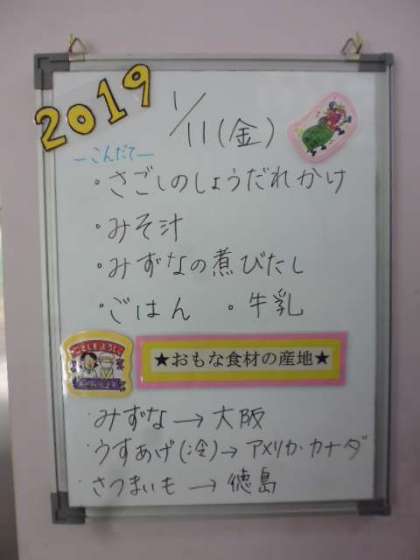 2019
1/11(金)
ーこんだてー
・さごしのしょうだれかけ
・みそ汁
・みずなの煮びたし
・ごはん ・牛乳
★おもな食材の産地★
・みずな→大阪
・うすあげ(冷)→アメリカ・カナダ
・さつまいも→徳島